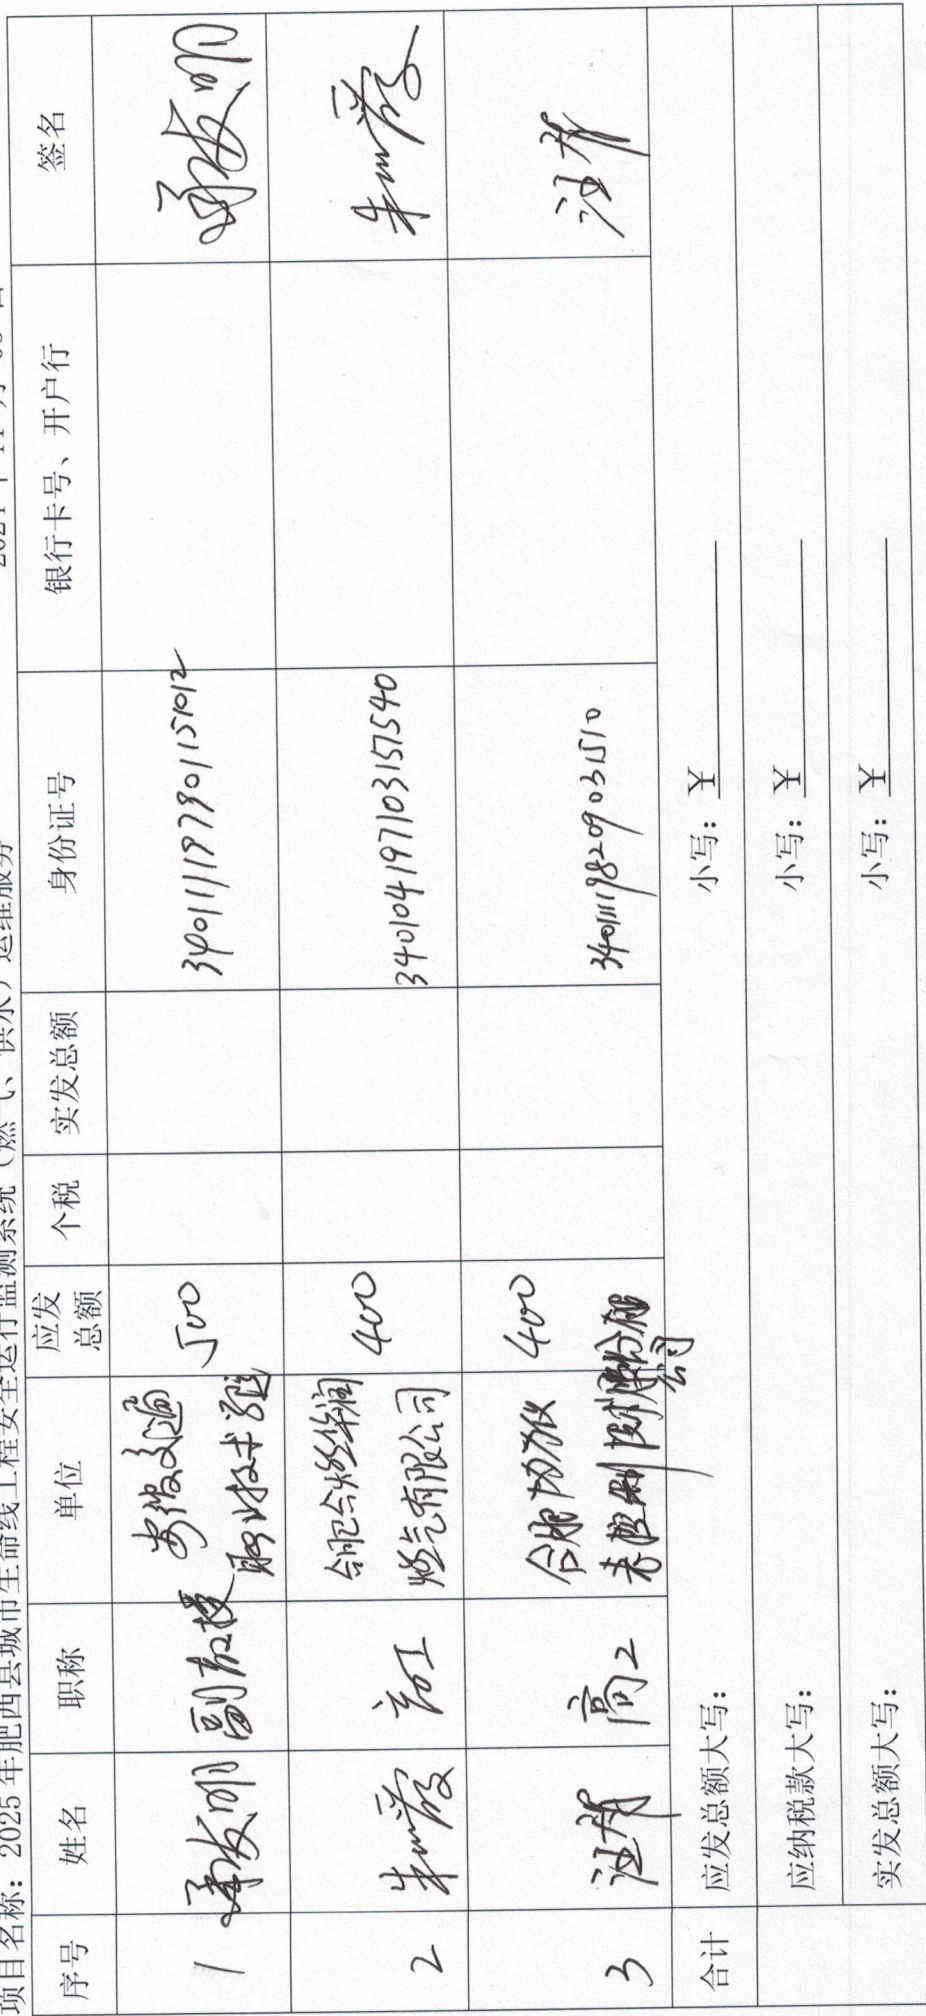 项目名称：2025年肥西县城市生命线工程安全运行监测系统（燃气、供水）运维服务
序号 姓名 职称 单位 应发总额 个税 实发总额 身份证号 银行卡号、开户行 签名
1 副教授 安徽交通职业技术学院 500 340111197901151012
2 朱霞 高工 合肥合燃华润燃气有限公司 400 340104197103157540 朱霞
3 汪胜 高工 合肥 股份有限公司 400 340111198209031510 汪胜
合计 应发总额大写： 小写：¥
应纳税款大写： 小写：¥
实发总额大写： 小写：¥